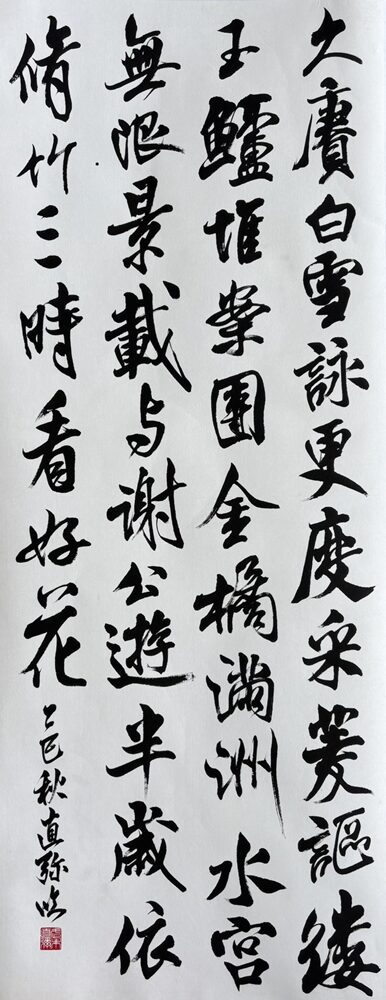 久賡白雪詠更度采菱謳縷
玉鱸堆案團金橘滿洲水宮
無限景載与謝公遊半歲依
脩竹三時看好花
乙巳秋直弥临